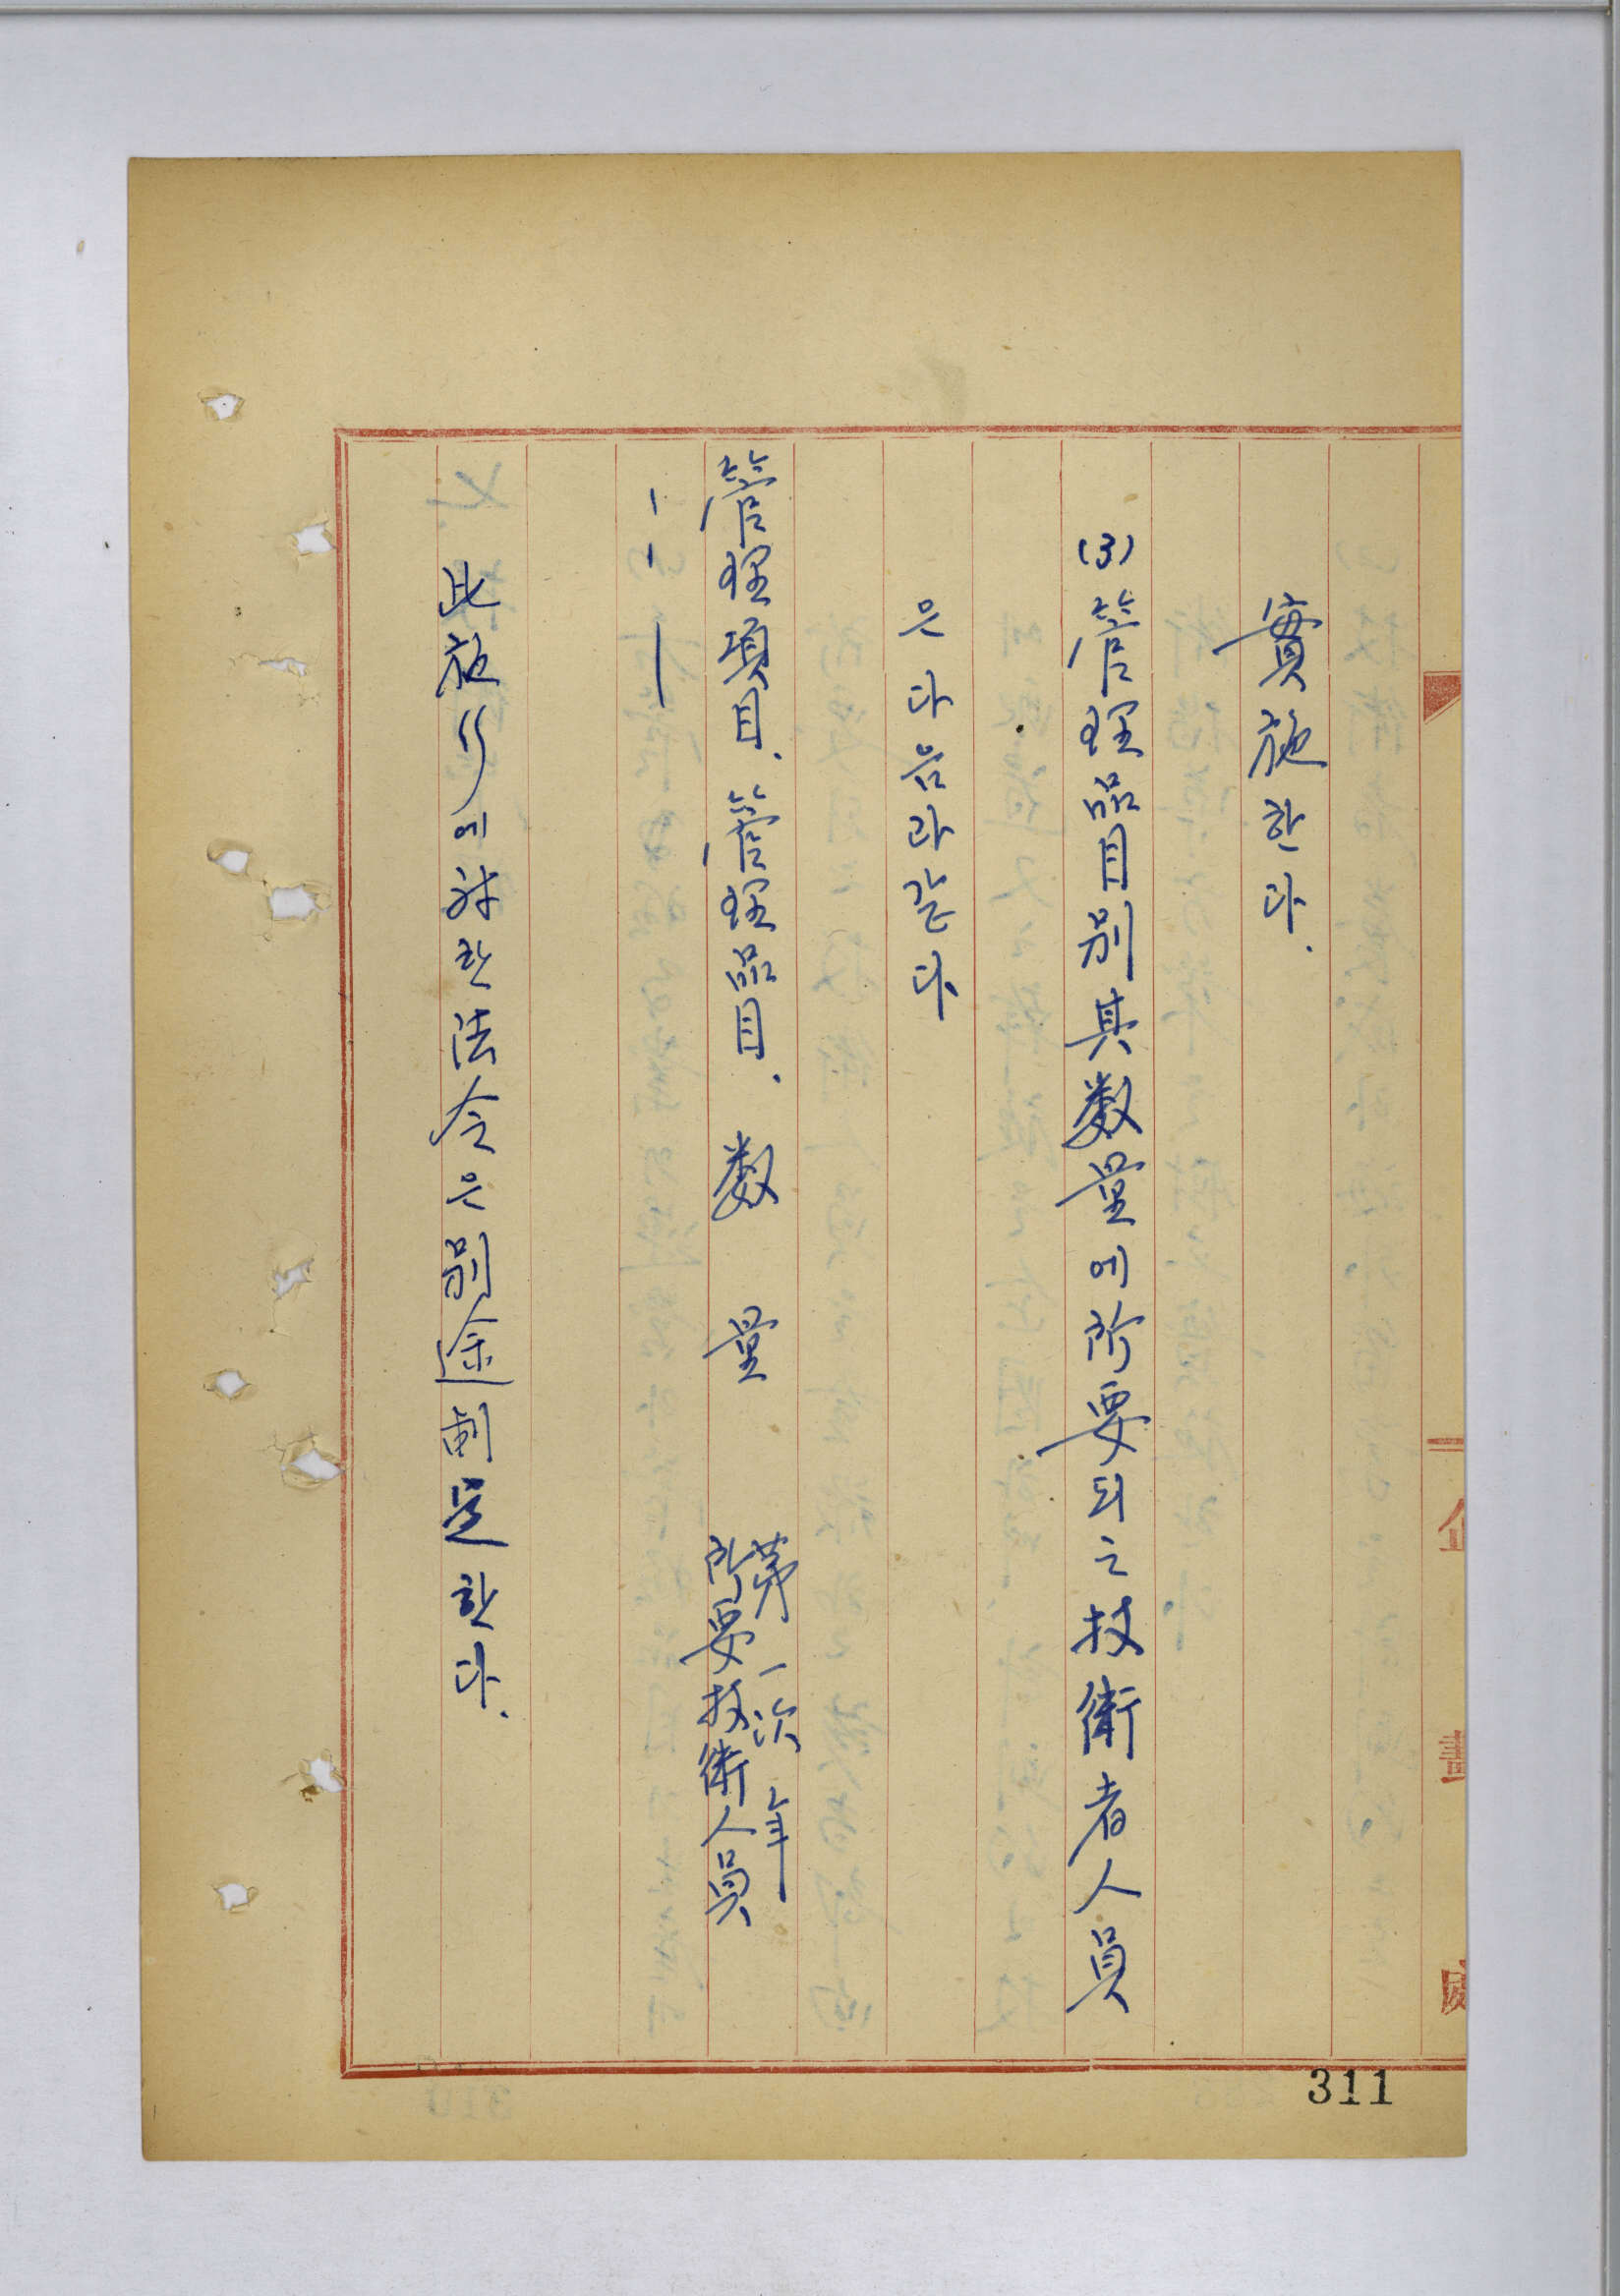 實施한다.
(3) 管理器具別其数量에 所要되는 技術者人員
은 다음과 같다
管理項目. 管理器具. 数 量 所要技術人員
第一次年
此施行에 対한 法令은 別途制定한다.
企 畫 處
311